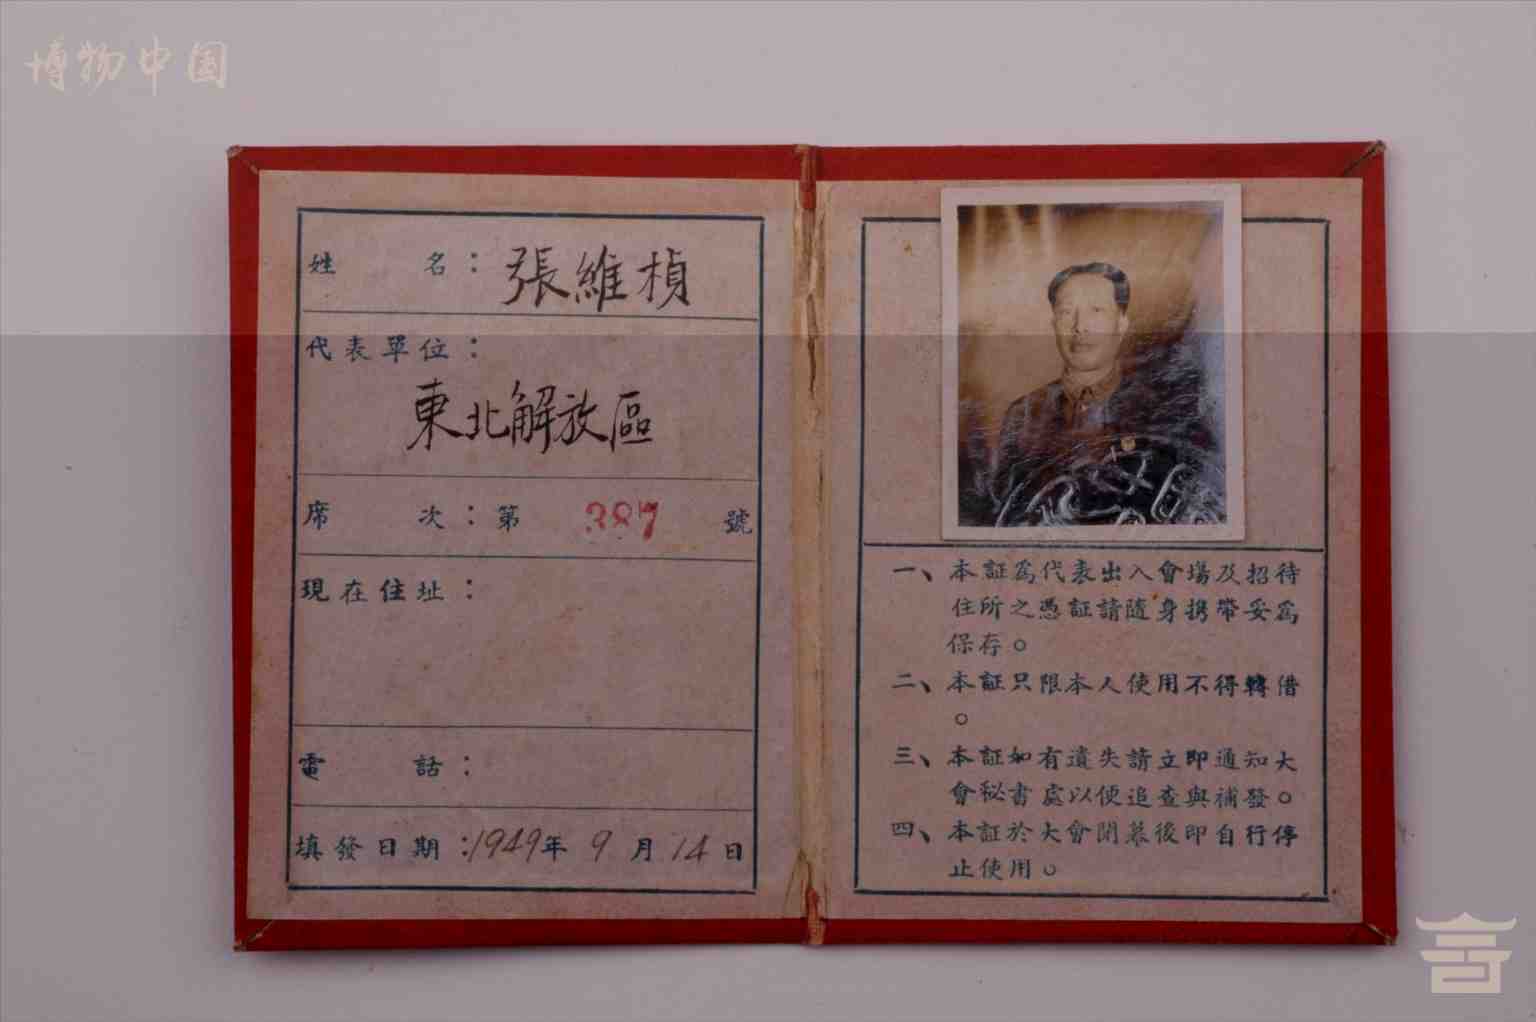 博物中国
姓名：張維楨
代表單位：
東北解放區
席次：第 387 號
現在住址：
電話：
填發日期：1949年9月14日
一、本証為代表出入會場及招待
住所之憑証請隨身携帶妥為
保存。
二、本証只限本人使用不得轉借
。
三、本証如有遺失請立即通知大
會秘書處以便追查與補發。
四、本証於大會閉幕後即自行停
止使用。